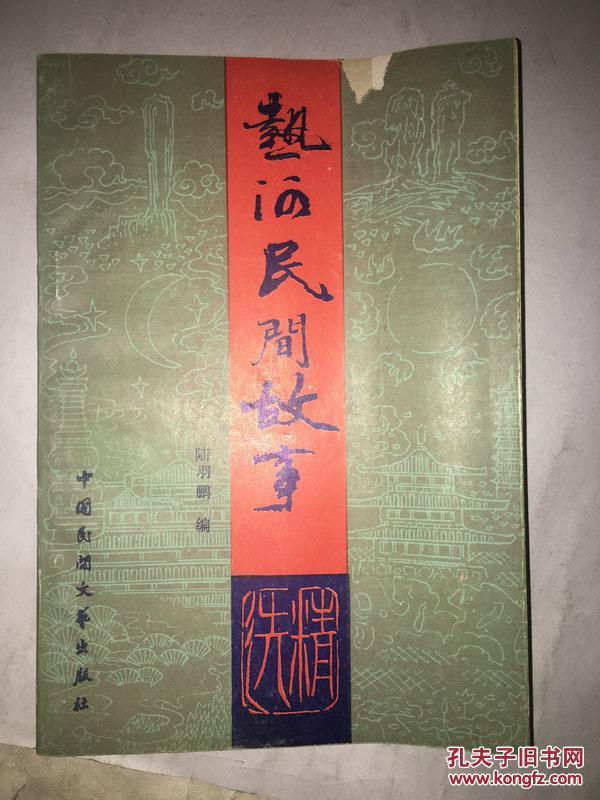 熱河民間故事
精选
陆羽鹏 编
中国民间文艺出版社
孔夫子旧书网
www.kongfz.com